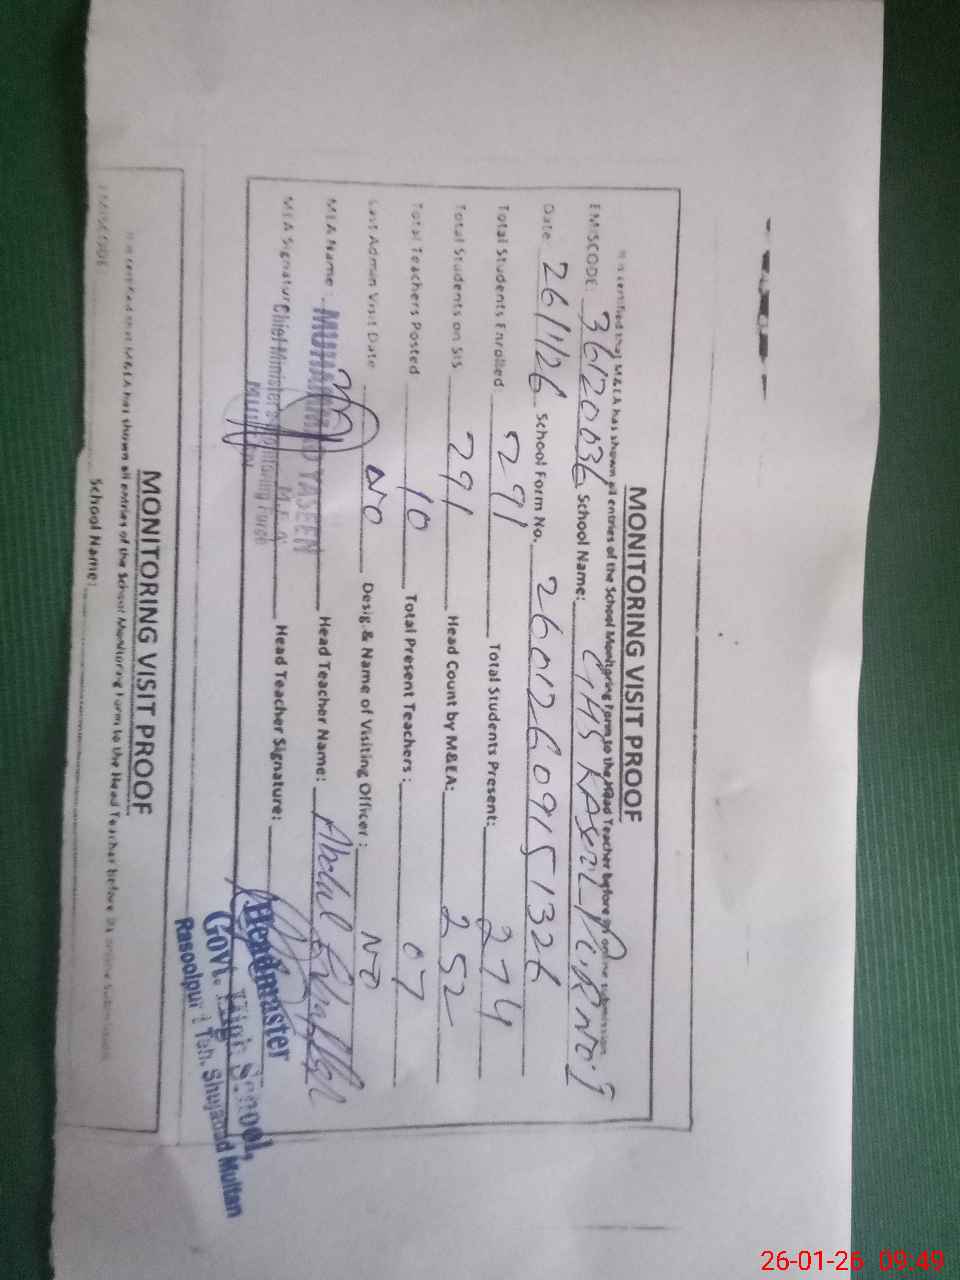 MONITORING VISIT PROOF
It is certified that M&EA has shown all entries of the School Monitoring Form to the Head Teacher before its online submission.
EMISCODE: 36120036 School Name: GHS RASOOL PUR NO. 1
Date 26/1/26 School Form No. 26012609151326
Total Students Enrolled 291 Total Students Present: 274
Total Students on SIS 291 Head Count by M&EA: 252
Total Teachers Posted 10 Total Present Teachers: 07
Last Admin Visit Date NO Desig. & Name of Visiting Officer: NO
MEA Name: MUHAMMAD YASEEN Head Teacher Name: Abdul
M.E.A
MEA Signature Chief Minister's Monitoring Force Head Teacher Signature:
MULTAN
Headmaster
Govt. High School,
Rasoolpur 1 Teh. Shujabad Multan
MONITORING VISIT PROOF
It is certified that M&EA has shown all entries of the School Monitoring Form to the Head Teacher before its online submission
EMISCODE School Name:
26-01-26 09:49